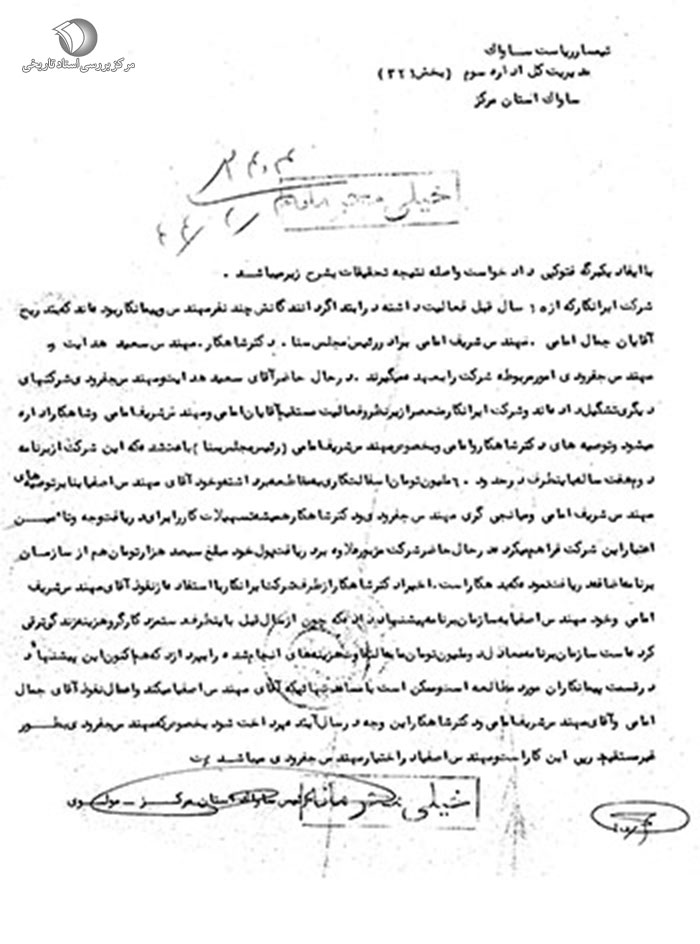 مرکز بررسی اسناد تاریخی
تیمسار ریاست ساواک
مدیریت کل اداره سوم (بخش ۳۲۱)
ساواک استان مرکز
خیلی محرمانه
با ایفاد یکبرگه فتوکپی دادخواست واصله نتیجه تحقیقات بشرح زیر میباشد .
شرکت ایرانکار که از ۱۵ سال قبل فعالیت داشته در ابتدا گردانندگانش چند نفر مهندس و پیمانکار بوده‌اند که بتدریج
آقایان جمال امامی . مهندس شریف امامی برادر رئیس مجلس سنا . دکتر شاهکار . مهندس سعید هدایت و
مهندس جفرودی امور مربوطه شرکت را بعهده میگیرند . در حال حاضر آقای سعید هدایت و مهندس جفرودی شرکتهای
دیگری تشکیل داده‌اند و شرکت ایرانکار منحصرا زیر نظر و فعالیت مستقیم آقایان امامی و مهندس شریف امامی و شاهکار اداره
میشود و توصیه های دکتر شاهکار و امامی و بخصوص مهندس شریف امامی (رئیس مجلس سنا) باعث شده که این شرکت از برنامه
دوم هفت ساله باینطرف در حدود ۶۰ میلیون تومان اسفالتکاری به مقاطعه برداشته و خود آقای مهندس اصفیا بنابر توصیه های
مهندس شریف امامی و میانجی گری مهندس جفرودی و دکتر شاهکار همیشه تسهیلات کار را برای دریافت وجه و تامین
اعتبار این شرکت فراهم میکرده در حال حاضر شرکت مزبور علاوه بر دریافت پول خود مبلغ سیصد هزار تومان هم از سازمان
برنامه اضافه دریافت نموده که بدهکار است . اخیرا دکتر شاهکار از طرف شرکت ایرانکار با استفاده از نفوذ آقای مهندس شریف
امامی و خود مهندس اصفیا به سازمان برنامه پیشنهاد داده که چون از سال قبل باینطرف دستمزد کارگر و هزینه زندگی ترقی
کرده است سازمان برنامه معادل دو میلیون تومان مابه‌التفاوت هزینه‌های انجام شده را بپردازد که هم اکنون این پیشنهاد
در قسمت پیمانکاران مورد مطالعه است و ممکن است با مساعدتهائیکه آقای مهندس اصفیا میکند و اعمال نفوذ آقای جمال
امامی و آقای مهندس شریف امامی و دکتر شاهکار این وجه در سال آینده پرداخت شود بخصوص که مهندس جفرودی بطور
غیر مستقیم در پی این کار است و مهندس اصفیا در اختیار مهندس جفرودی میباشد
رئیس ساواک استان مرکز - مولوی
خیلی محرمانه